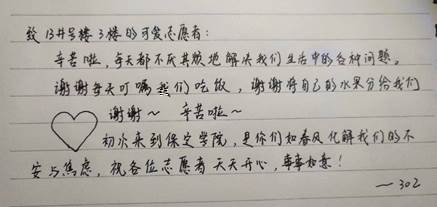 致13#号楼3楼的可爱志愿者：
辛苦啦，每天都不厌其烦地解决我们生活中的各种问题。
谢谢每天叮嘱我们吃饭，谢谢将自己的水果分给我们
谢谢~ 辛苦啦~
初次来到保定学院，是你们如春风化解我们的不
安与焦虑，祝各位志愿者天天开心，事事如意！
—302